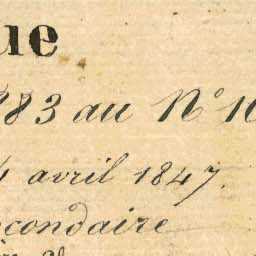 ue
283 au N° 10
4 avril 1847.
econdaire